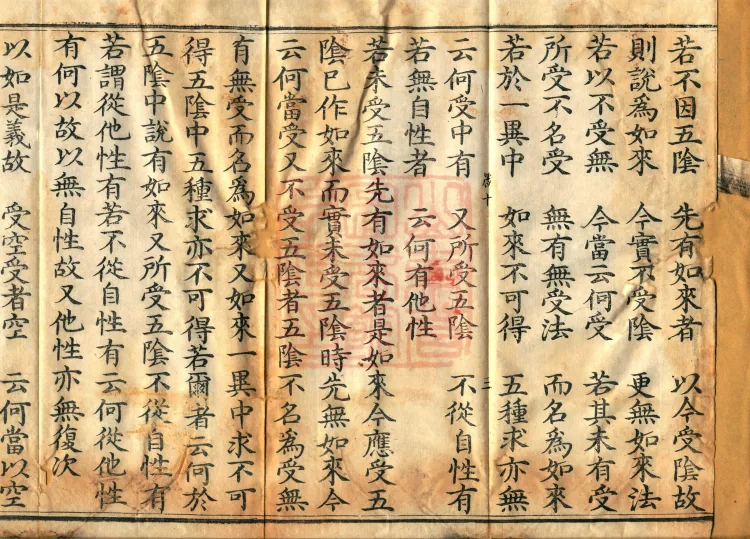 若不因五陰 先有如來者 以今受陰故
則說為如來 今實不受陰 更無如來法
若以不受無 今當云何受 若其未有受
所受不名受 無有無受法 而名為如來
若於一異中 如來不可得 五種求亦無
云何受中有 又所受五陰 不從自性有
若無自性者 云何有他性
若未受五陰先有如來者是如來今應受五
陰已作如來而實未受五陰時先無如來今
云何當受又不受五陰者五陰不名為受無
有無受而名為如來又如來一異中求不可
得五陰中五種求亦不可得若爾者云何於
五陰中說有如來又所受五陰不從自性有
若謂從他性有若不從自性有云何從他性
有何以故以無自性故又他性亦無復次
以如是義故 受空受者空 云何當以空